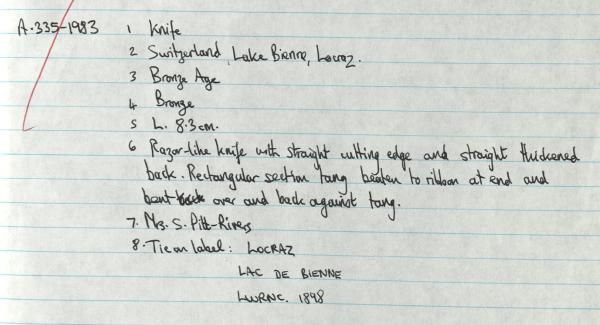 A.335-1983 1 Knife
2 Switzerland, Lake Bienne, Locraz.
3 Bronze Age
4 Bronze
5 L. 8.3cm.
6 Razor-like knife with straight cutting edge and straight thickened
back. Rectangular section tang beaten to ribbon at end and
bent back over and back against tang.
7. Mrs. S. Pitt-Rivers
8. Tie on label: LOCRAZ
LAC DE BIENNE
1898